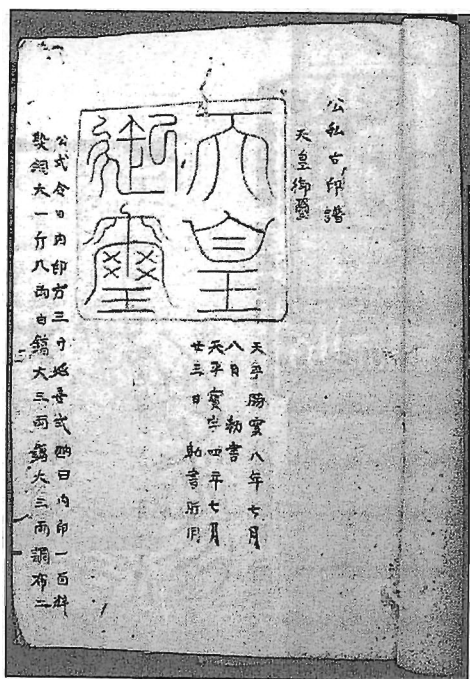 公私古印譜
天皇御璽
天皇
御璽
天平勝寶八年七月
八日勅書
天平寶字四年七月
廿三日勅書所用
公式令曰内印方三寸延喜式曰内印一面料
熟銅大一斤八両白鑞大三両鑞大三両調布二